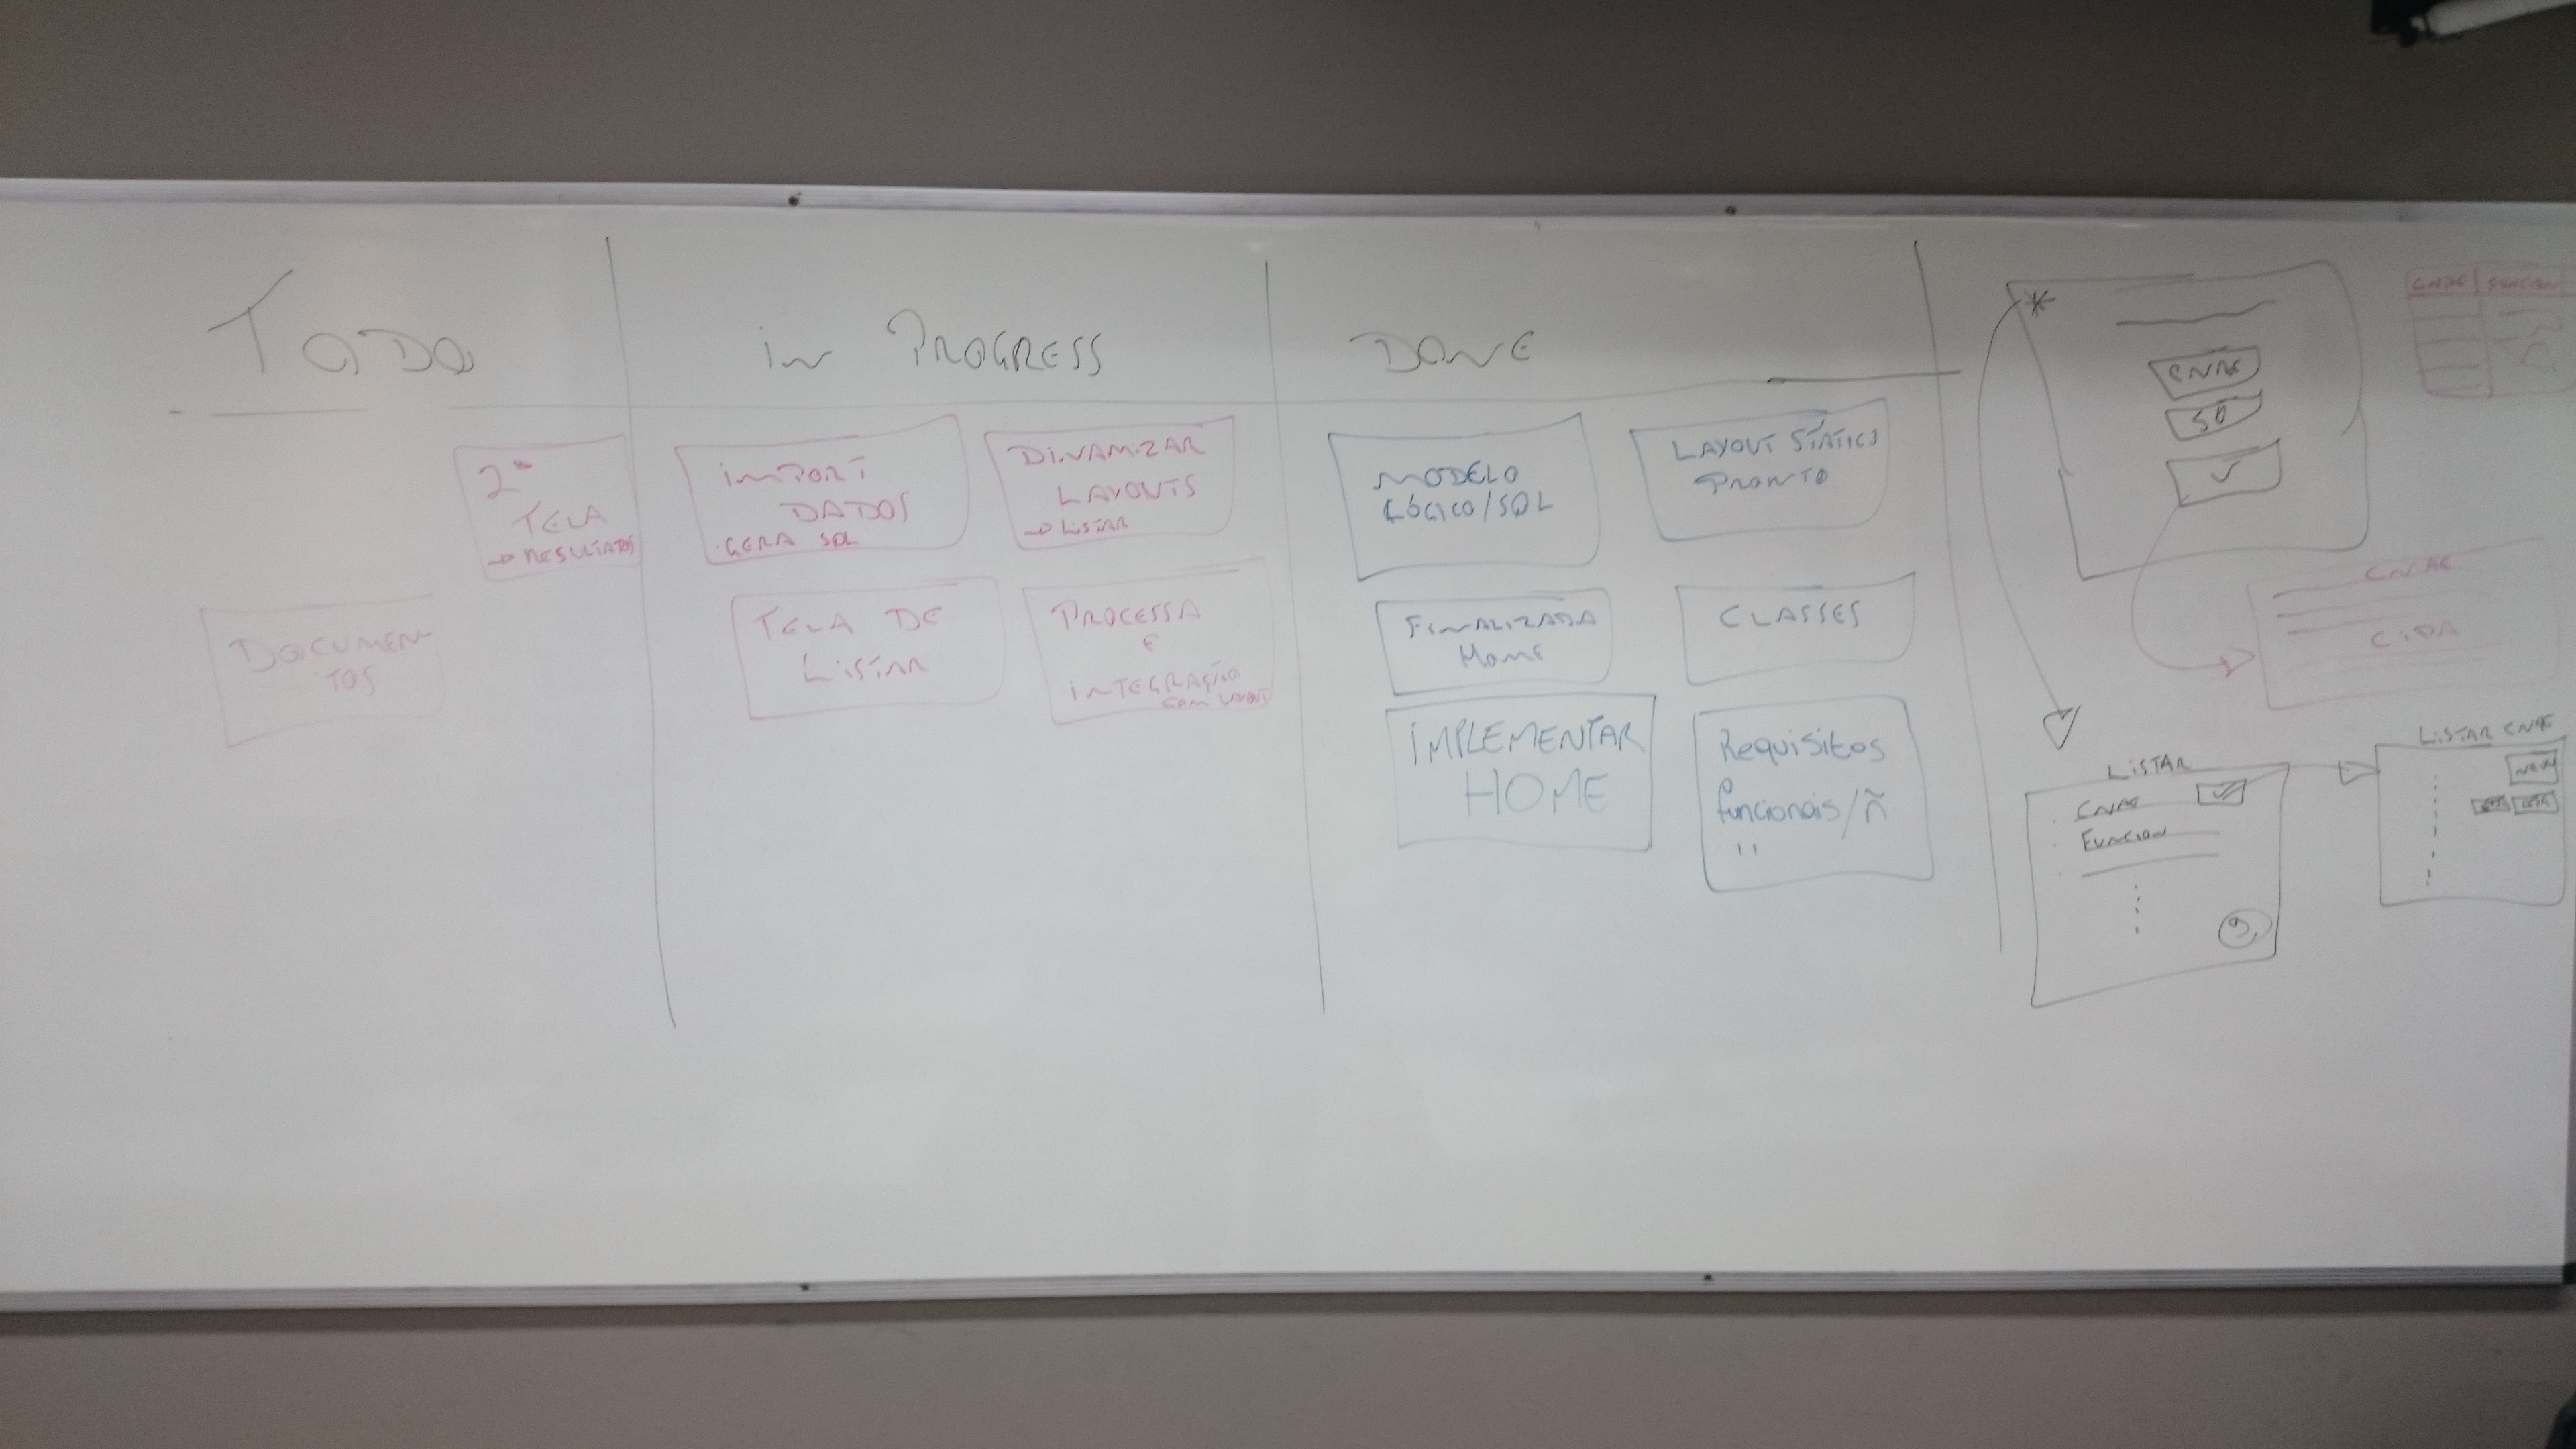 TODO
in PROGRESS
DONE
2ª
TELA
→ RESULTADOS
DOCUMEN
TOS
IMPORT
DADOS
GERA SQL
DINAMIZAR
LAYOUTS
→ LISTAR
TELA DE
LISTAR
PROCESSA
E
INTEGRAÇÃO
COM LAYOUT
MODELO
LÓGICO/SQL
LAYOUT STATICS
PRONTO
FINALIZADA
HOME
CLASSES
IMPLEMENTAR
HOME
Requisitos
funcionais/ñ
"
*
CNAE
✓
CNAE
CIDA
LISTAR
CNAE
FUNCION
LISTAR CNAE
NEW
CNAE